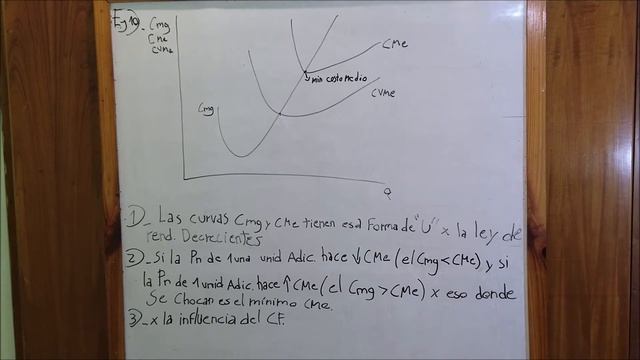 Ej 10)_ Cmg
CMe
CVMe
CMe
min costo Medio
CVMe
Cmg
Q
1)_ Las curvas Cmg y CMe tienen esa Forma de "U" x la ley de
rend. Decrecientes
2)_ Si la Pn de 1 una unid Adic. hace ↓ CMe (el Cmg < CMe) y si
la Pn de 1 unid Adic. hace ↑ CMe (el Cmg > CMe) x eso donde
Se Chocan es el mínimo CMe.
3)_ x la influencia del CF.